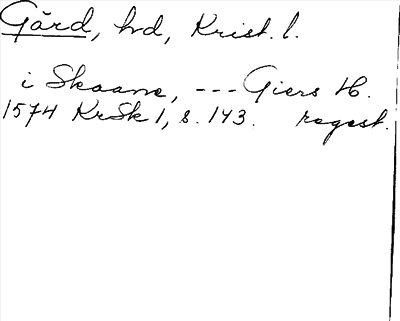 Gärd, hd, Krist. l.
i Skaane, --- Giers H.
1574 KrSk 1, s. 143. regest.